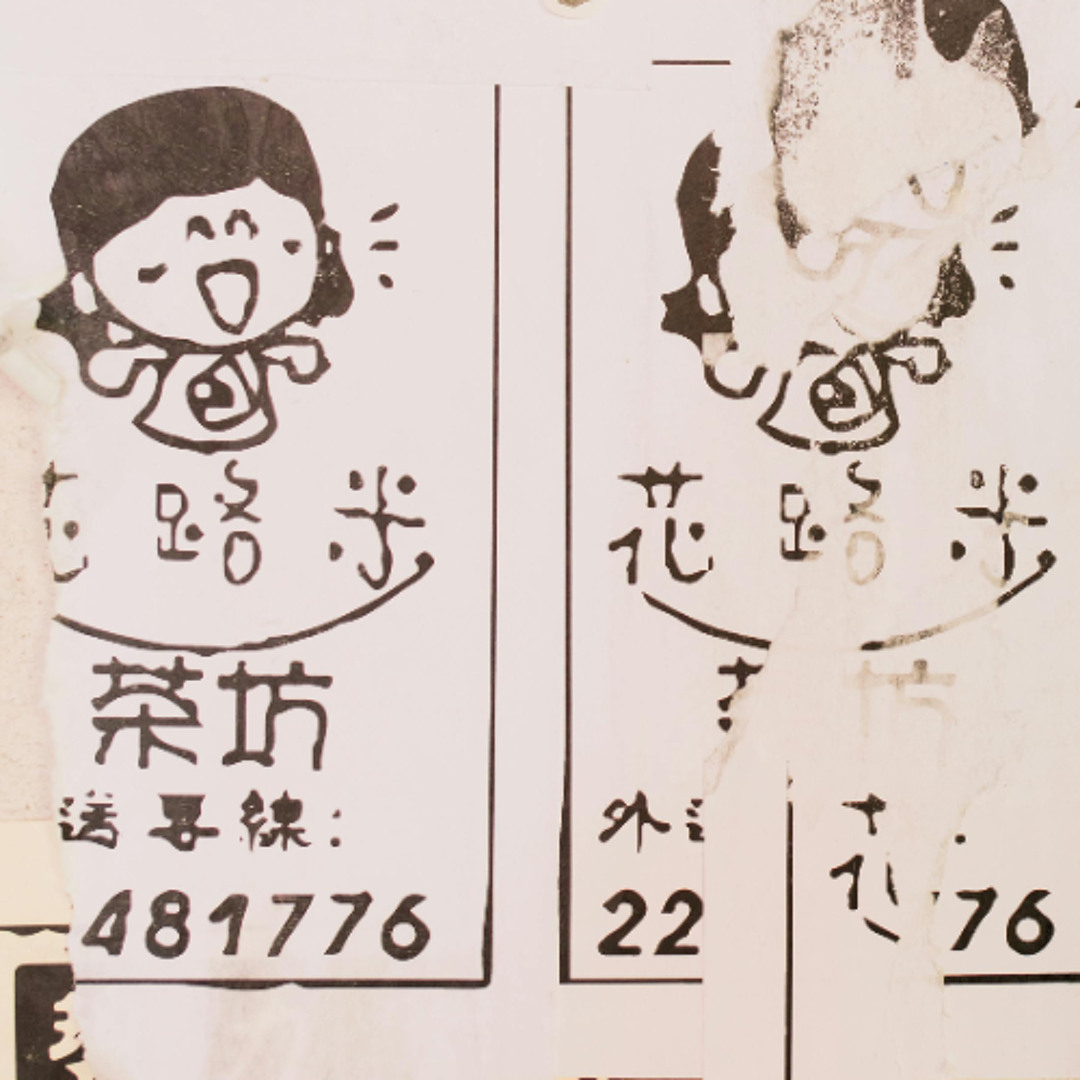 花路米
茶坊
送專線:
481776
花路米
外送
22
76